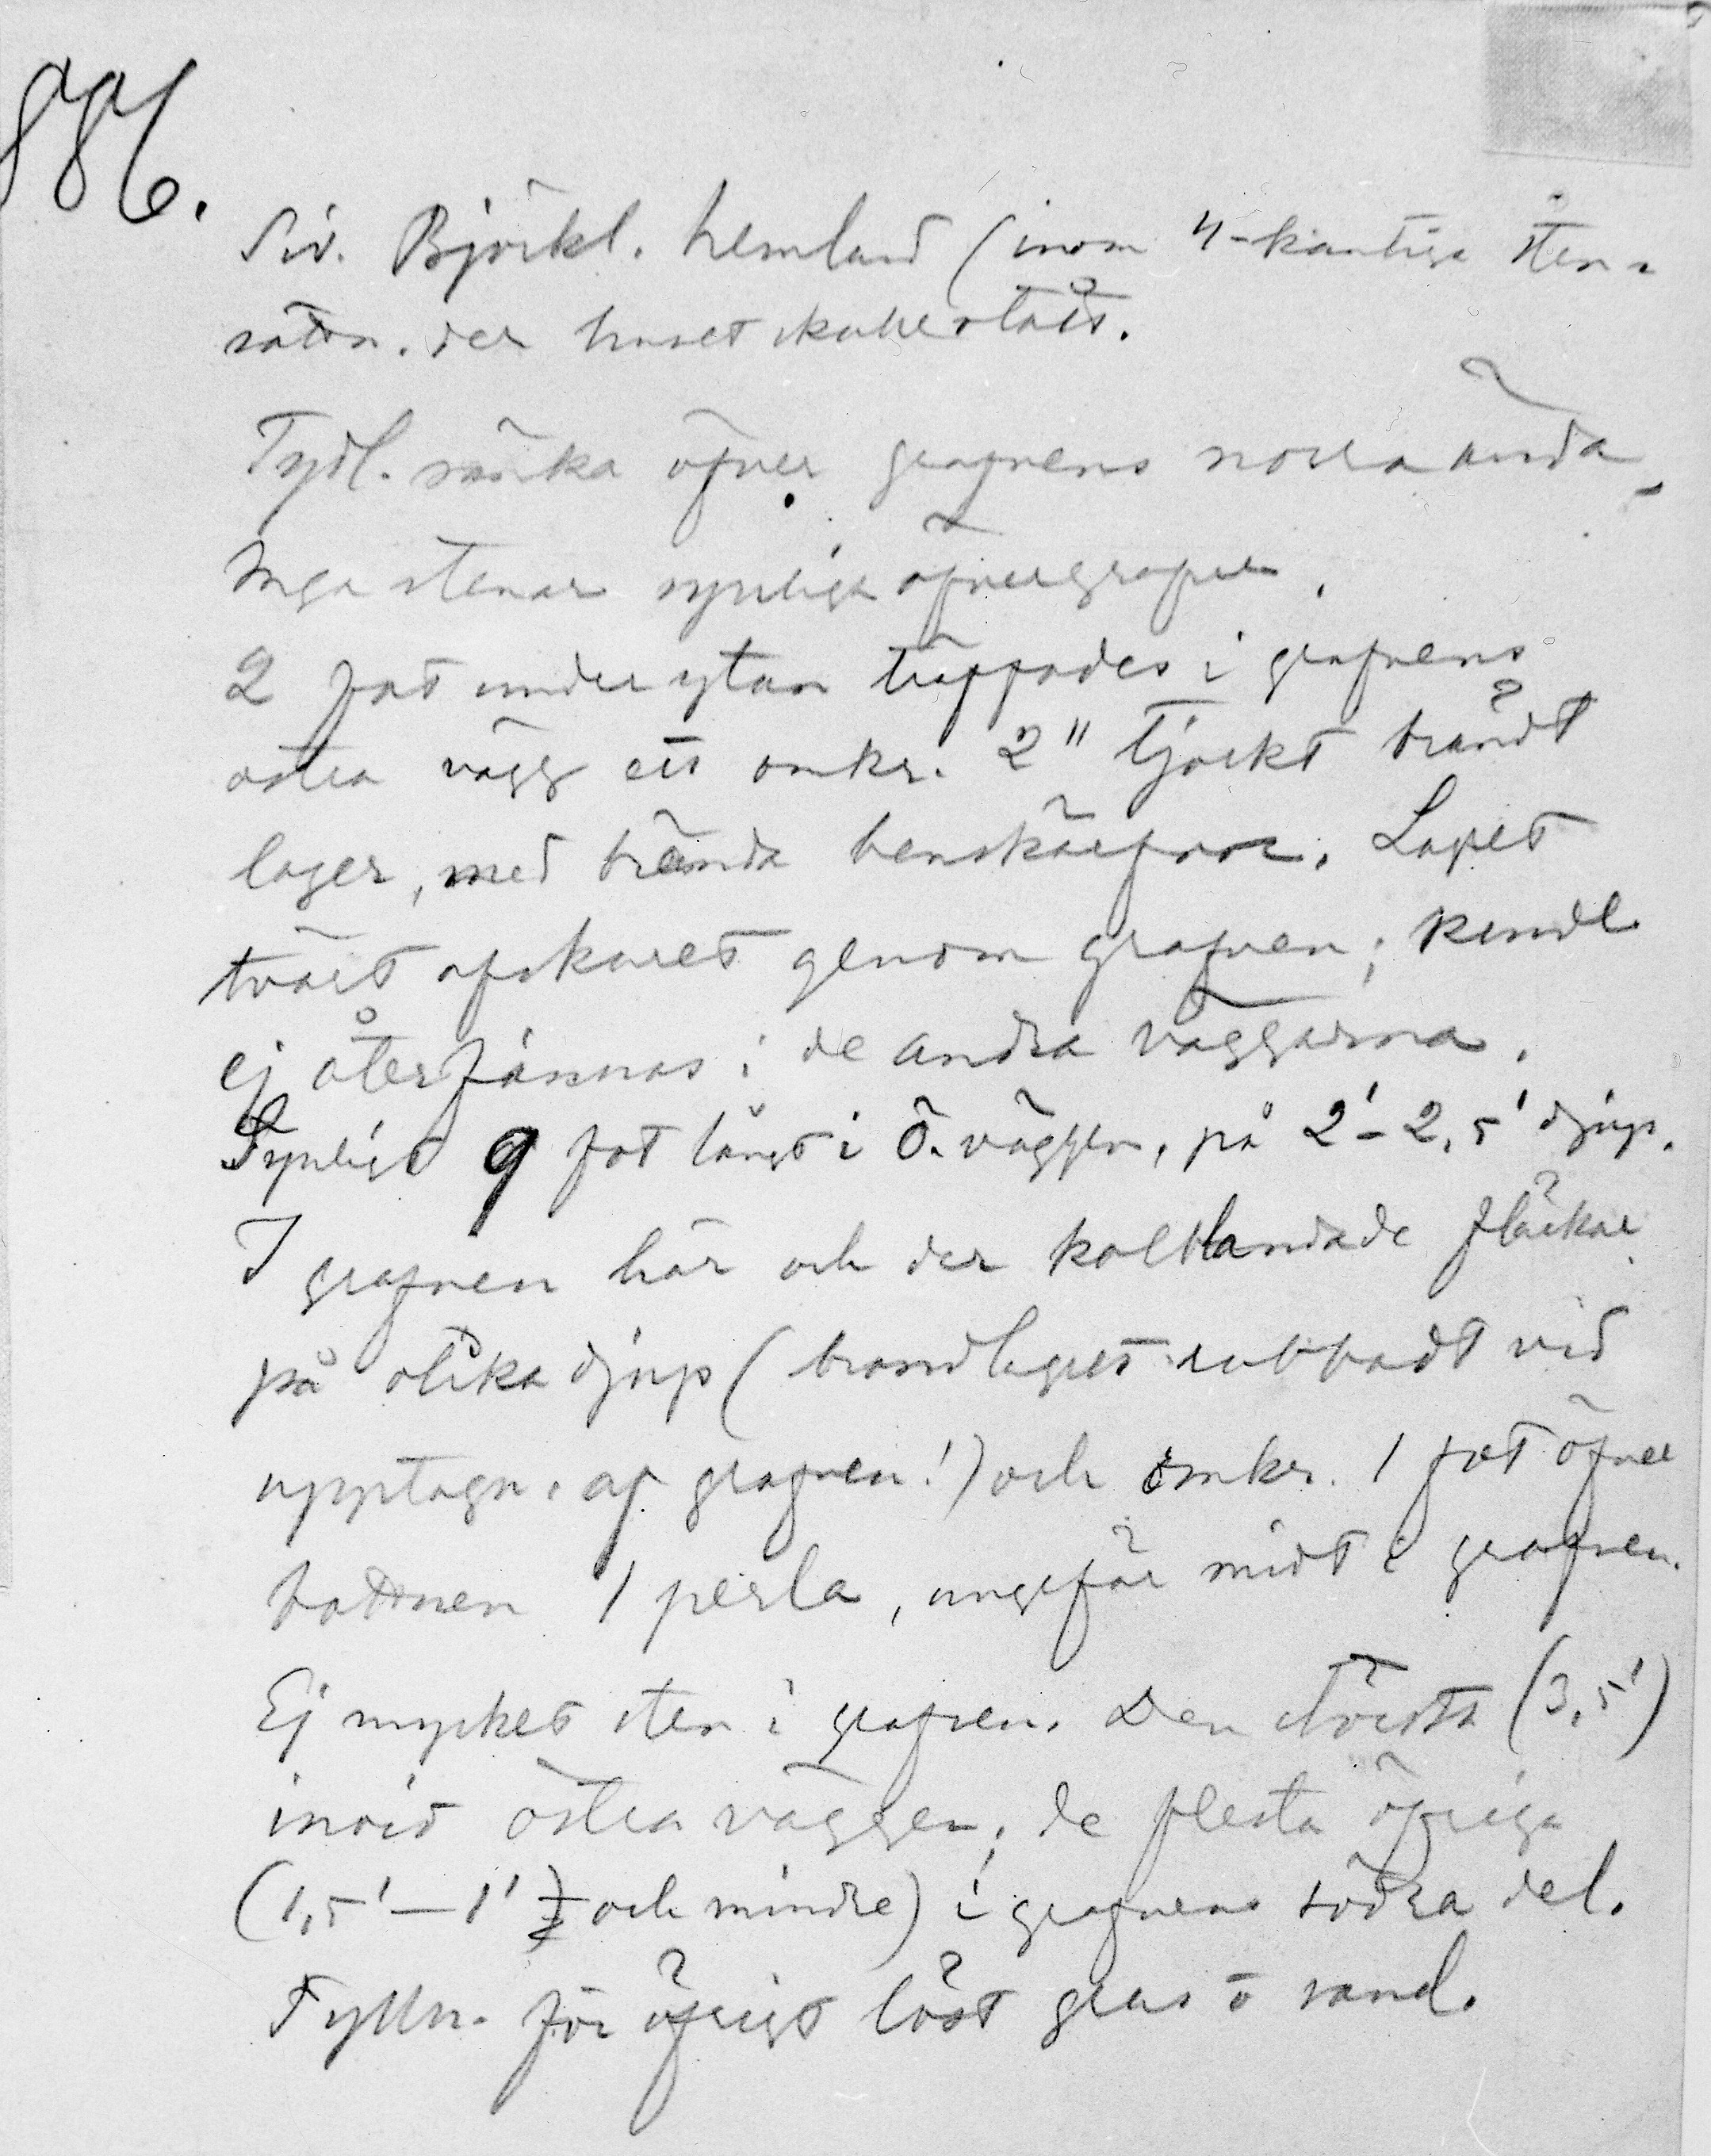 886.
Siv. Björkl. hemland (inom 4-kantiga sten-
sättn. der huset skall ha stått.
Tydl. sänka öfver grafvens norra ända.
Inga stenar synliga öfver grafven.
2 fot under ytan träffades i grafvens
östra vägg ett omkr. 2" tjockt brändt
lager, med brända benskärfvor. Lagret
tvärt afskuret genom grafven; kunde
ej återfinnas i de andra väggarna.
Synligt 9 fot långt i Ö. väggen, på 2'-2,5' djup.
I grafven här och der kolblandade fläckar
på olika djup (brandlagret rubbadt vid
upptagn. af grafven!) och omkr. 1 fot öfver
bottnen 1 perla, ungefär midt i grafven.
Ej mycket sten i grafven. Den största (3,5')
invid östra väggen; de flesta öfriga
(1,5'—1' och mindre) i grafvens södra del.
Fylln. för öfrigt löst grus o sand.